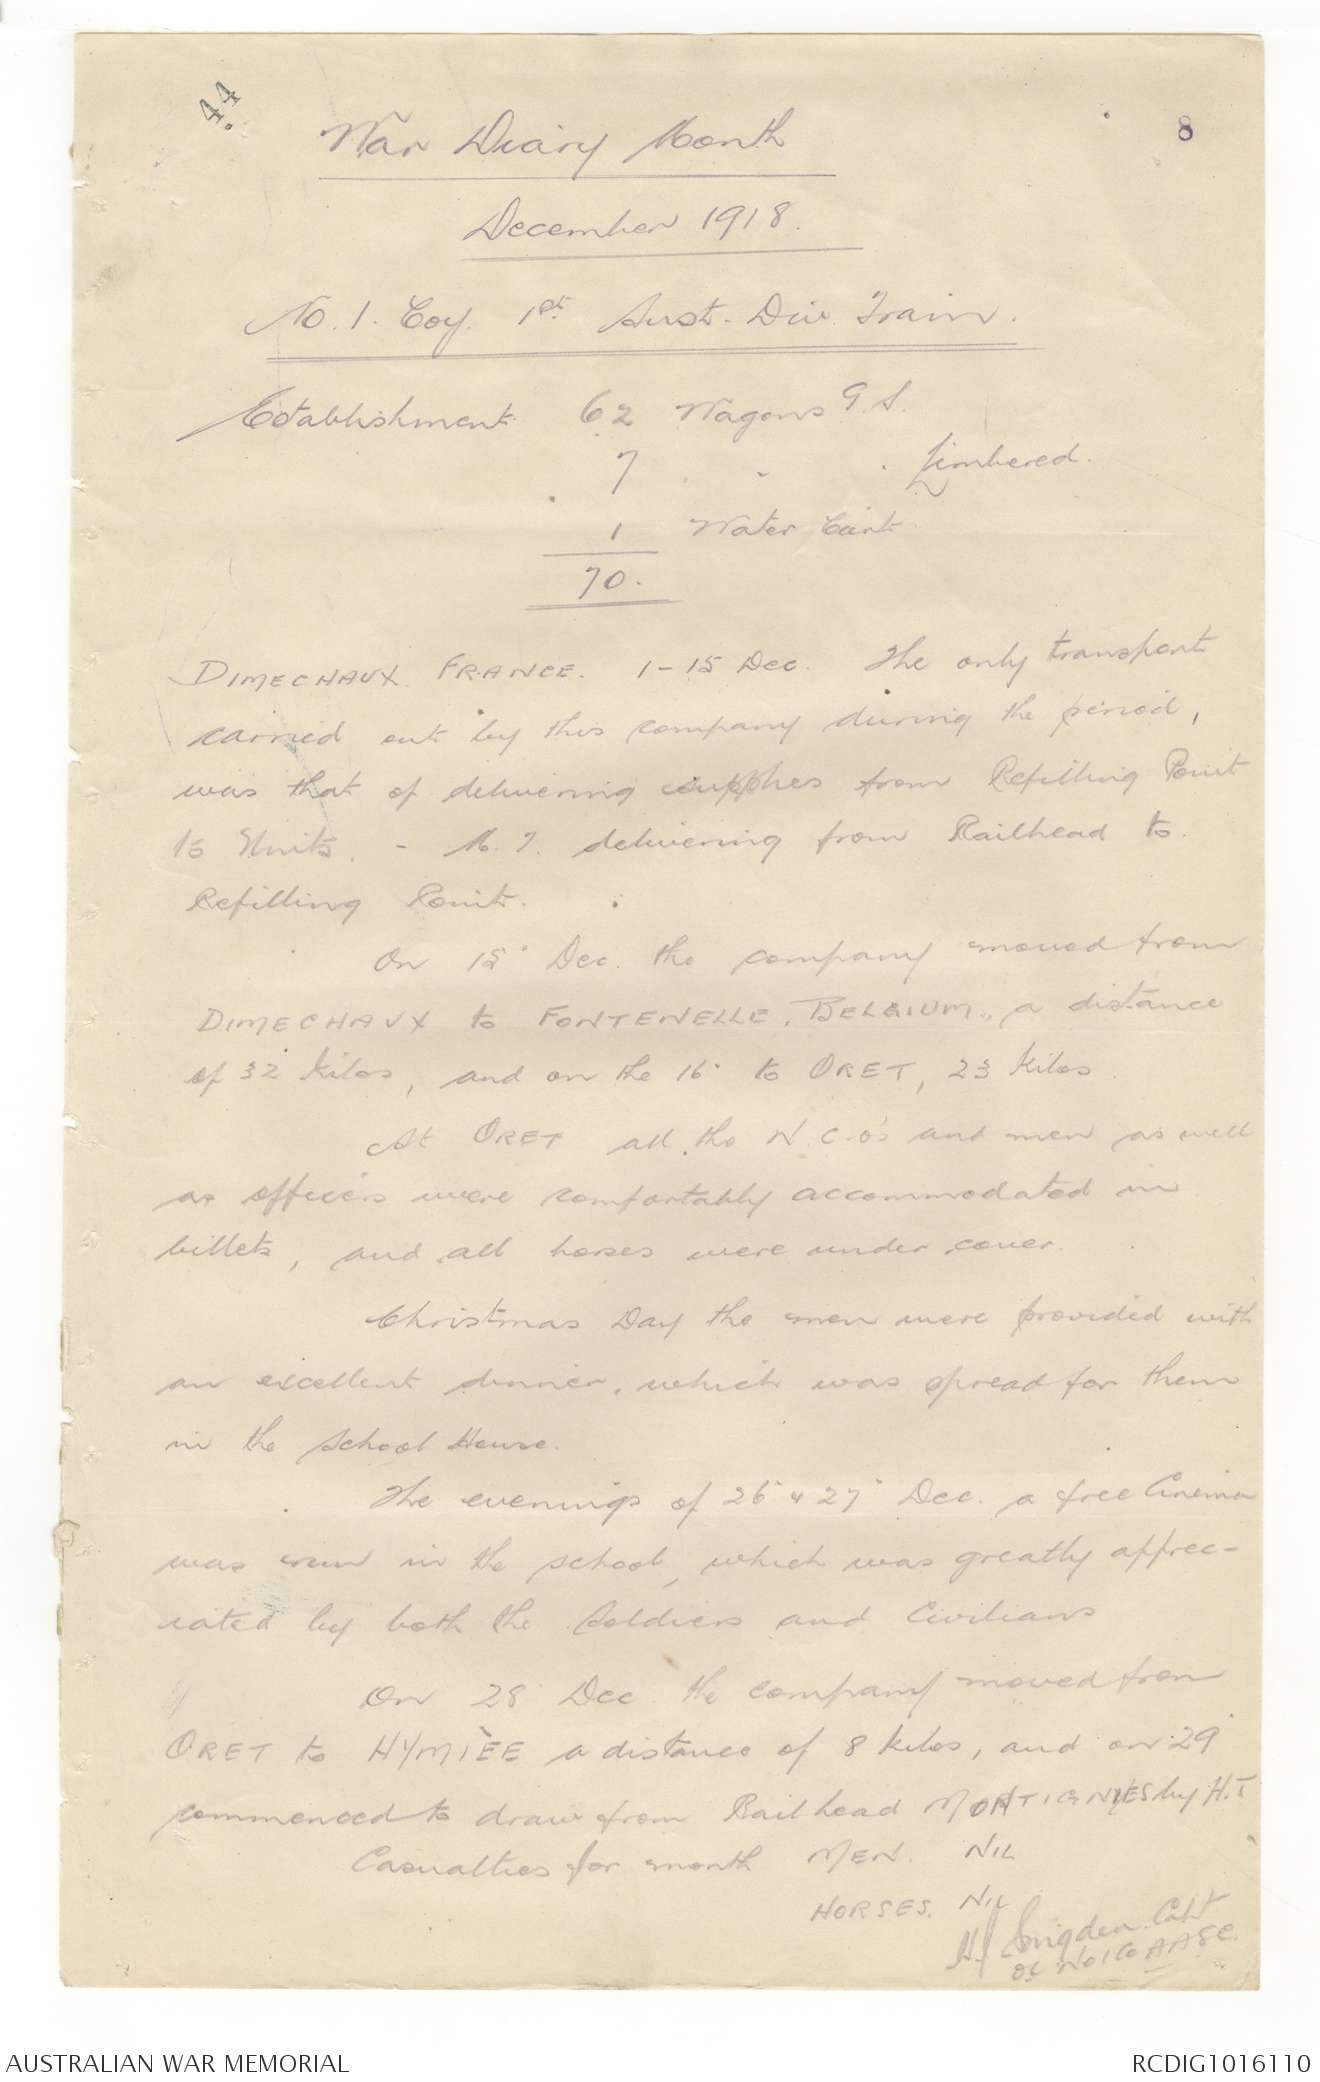 44
8
War Diary Month
December 1918.
No. 1. Coy. 1st Aust. Div. Train.
Establishment 62 Wagons G.S.
7 " " Limbered.
1 Water Cart
70.
DIMECHAUX. FRANCE. 1-15 Dec. The only transport
carried out by this company during the period,
was that of delivering supplies from Refilling Point
to Units. - M.T. delivering from Railhead to
Refilling Point.
On 15" Dec. the company moved from
DIMECHAUX to FONTENELLE, BELGIUM., a distance
of 32 kilos, and on the 16" to ORET, 23 kilos.
At ORET all the N.C.O's and men as well
as officers were comfortably accommodated in
billets, and all horses were under cover.
Christmas Day the men were provided with
an excellent dinner, which was spread for them
in the School House.
The evenings of 26" & 27" Dec. a free Cinema
was run in the school, which was greatly apprec-
iated by both the Soldiers and Civilians
On 28" Dec. the company moved from
ORET to HYMIÈE a distance of 8 kilos, and on 29"
commenced to draw from Railhead MONTIGNIES by H.T
Casualties for month MEN. NIL
HORSES. NIL
Capt
OC No 1 Co AASC.
AUSTRALIAN WAR MEMORIAL
RCDIG1016110